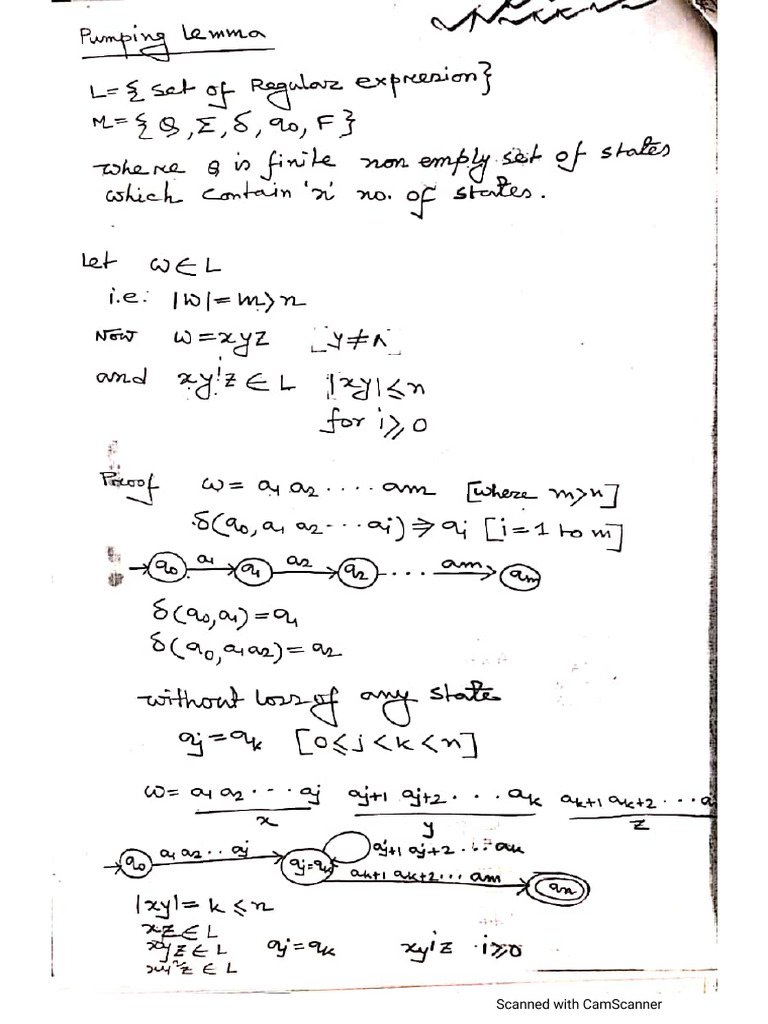 Pumping Lemma
L={ set of Regular expresion}
M={Q,Σ,δ,q0,F}
where Q is finite non emply set of states
which contain 'n' no. of states.
Let w∈L
i.e: |w|=m>n
Now w=xyz [y≠∧]
and xy^i z∈L |xy|≤n
for i≥0
Proof w= a1 a2 .... am [where m>n]
δ(q0,a1 a2 --- ai)⇒qi [i=1 to m]
q0 a1 q1 a2 q2 .... am qm
δ(q0,a1)=q1
δ(q0,a1a2)=q2
without loss of any state
qj=qk [0≤j<k<n]
w= a1 a2 ... aj aj+1 aj+2 ... ak ak+1 ak+2 ... a
x y z
q0 a1 a2 .. aj qj=qk aj+1 aj+2 ... ak
ak+1 ak+2 ... am qn
|xy|=k≤n
xz∈L
xyz∈L qj=qk xy^i z i≥0
xy²z∈L
Scanned with CamScanner